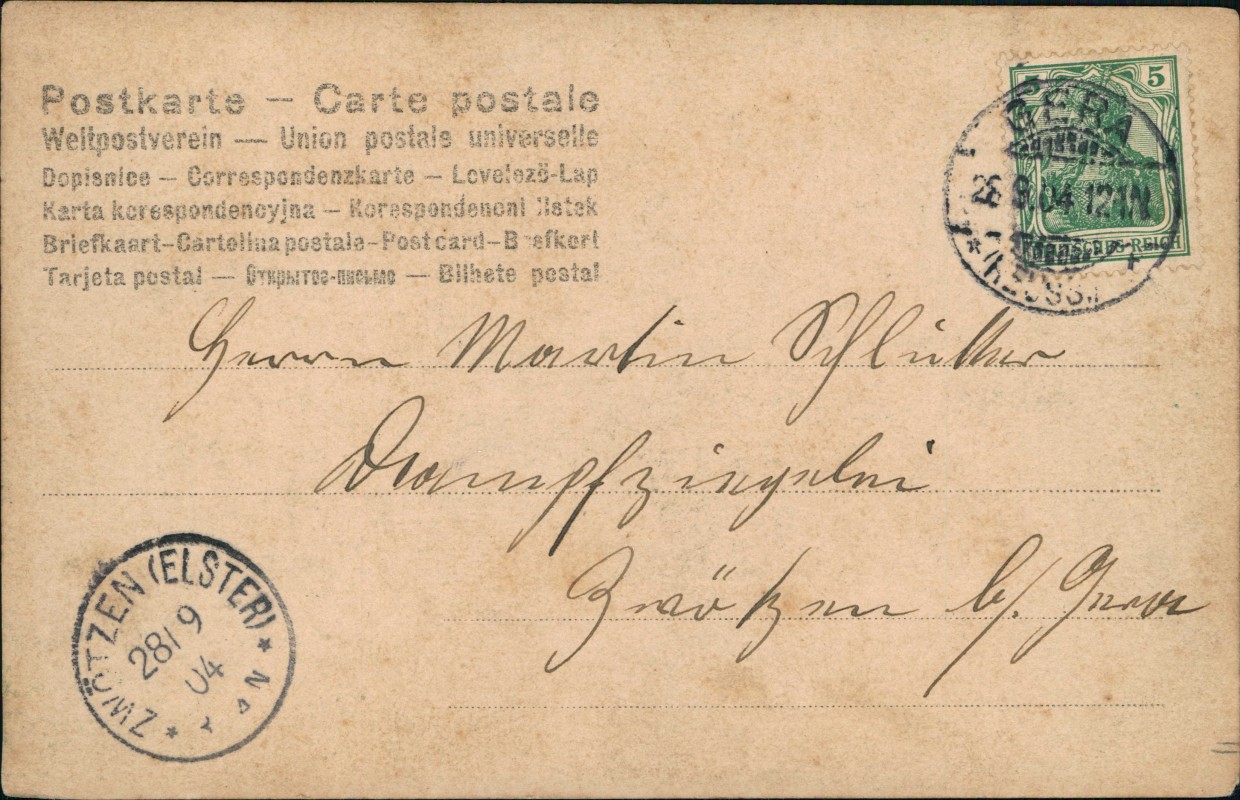 Postkarte — Carte postale
Weltpostverein — Union postale universelle
Dopisnice — Correspondenzkarte — Levelező-Lap
Karta korespondencyjna — Korespondenčni listek
Briefkaart-Cartolina postale-Post card-Brefkort
Tarjeta postal — Открытое-письмо — Bilhete postal
5
DEUTSCHES REICH
GERA
9.04 12-1N
* (REUSS)
Herrn Martin Schlütter
Dampfziegelei
Zwötzen b/. Gera
ZWÖTZEN (ELSTER)
28/9
04
* *
N